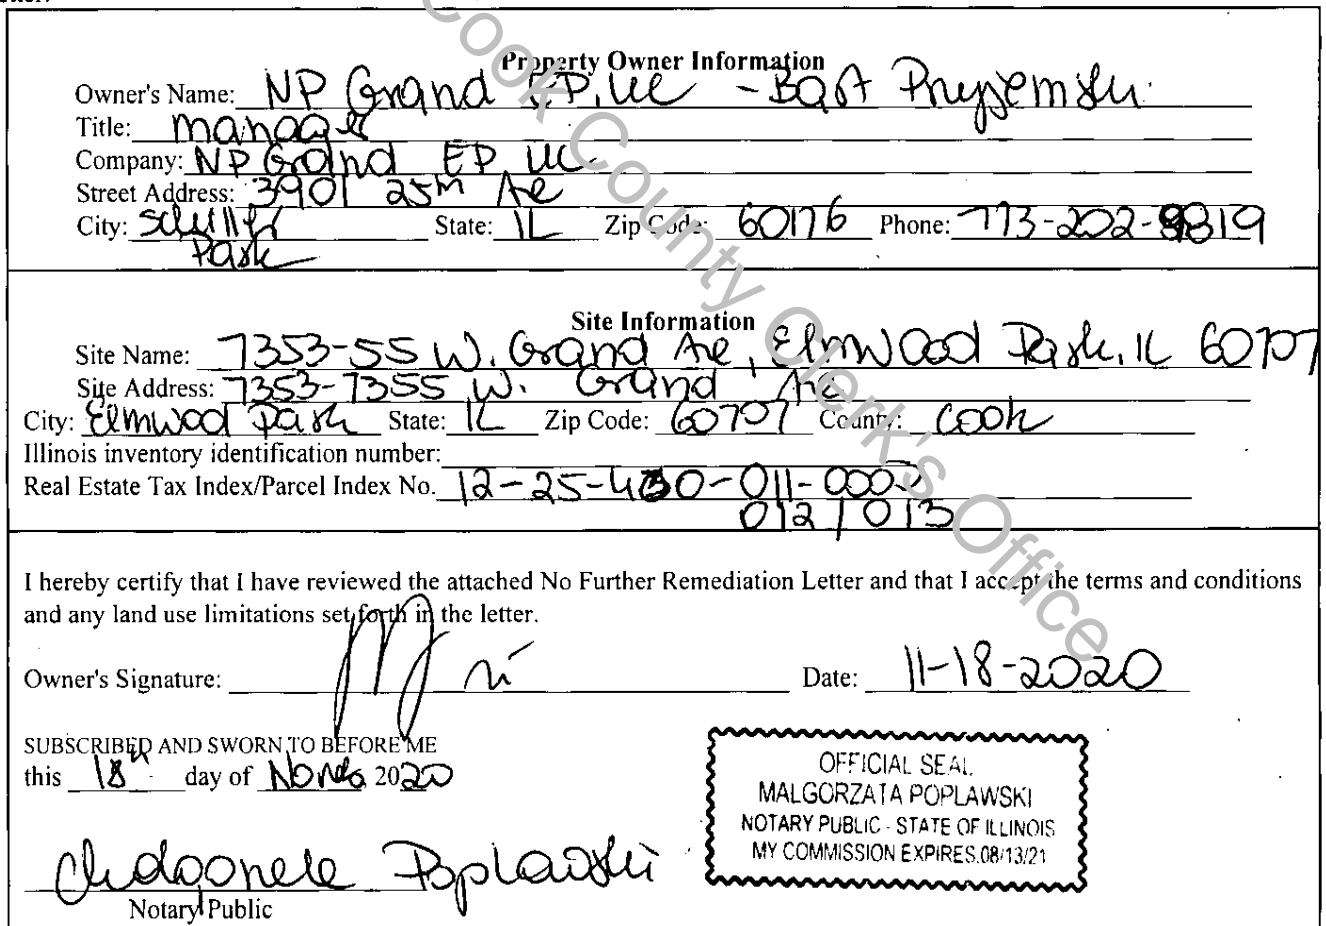 Property Owner Information
Owner's Name: NP Grand EP, LLC - Bart Przyjemski
Title: manager
Company: NP Grand EP LLC
Street Address: 3901 25th Ave
City: Schiller Park State: IL Zip Code: 60176 Phone: 773-202-8819
Site Information
Site Name: 7353-55 W. Grand Ave, Elmwood Park, IL 60707
Site Address: 7353-7355 W. Grand Ave
City: Elmwood Park State: IL Zip Code: 60707 County: Cook
Illinois inventory identification number:
Real Estate Tax Index/Parcel Index No. 12-25-430-011-0000
012 / 013
I hereby certify that I have reviewed the attached No Further Remediation Letter and that I accept the terms and conditions
and any land use limitations set forth in the letter.
Owner's Signature: Date: 11-18-2020
SUBSCRIBED AND SWORN TO BEFORE ME
this 18th day of 2020
OFFICIAL SEAL
MALGORZATA POPLAWSKI
NOTARY PUBLIC - STATE OF ILLINOIS
MY COMMISSION EXPIRES.08/13/21
Poplawski
Notary Public
Cook County Clerk's Office